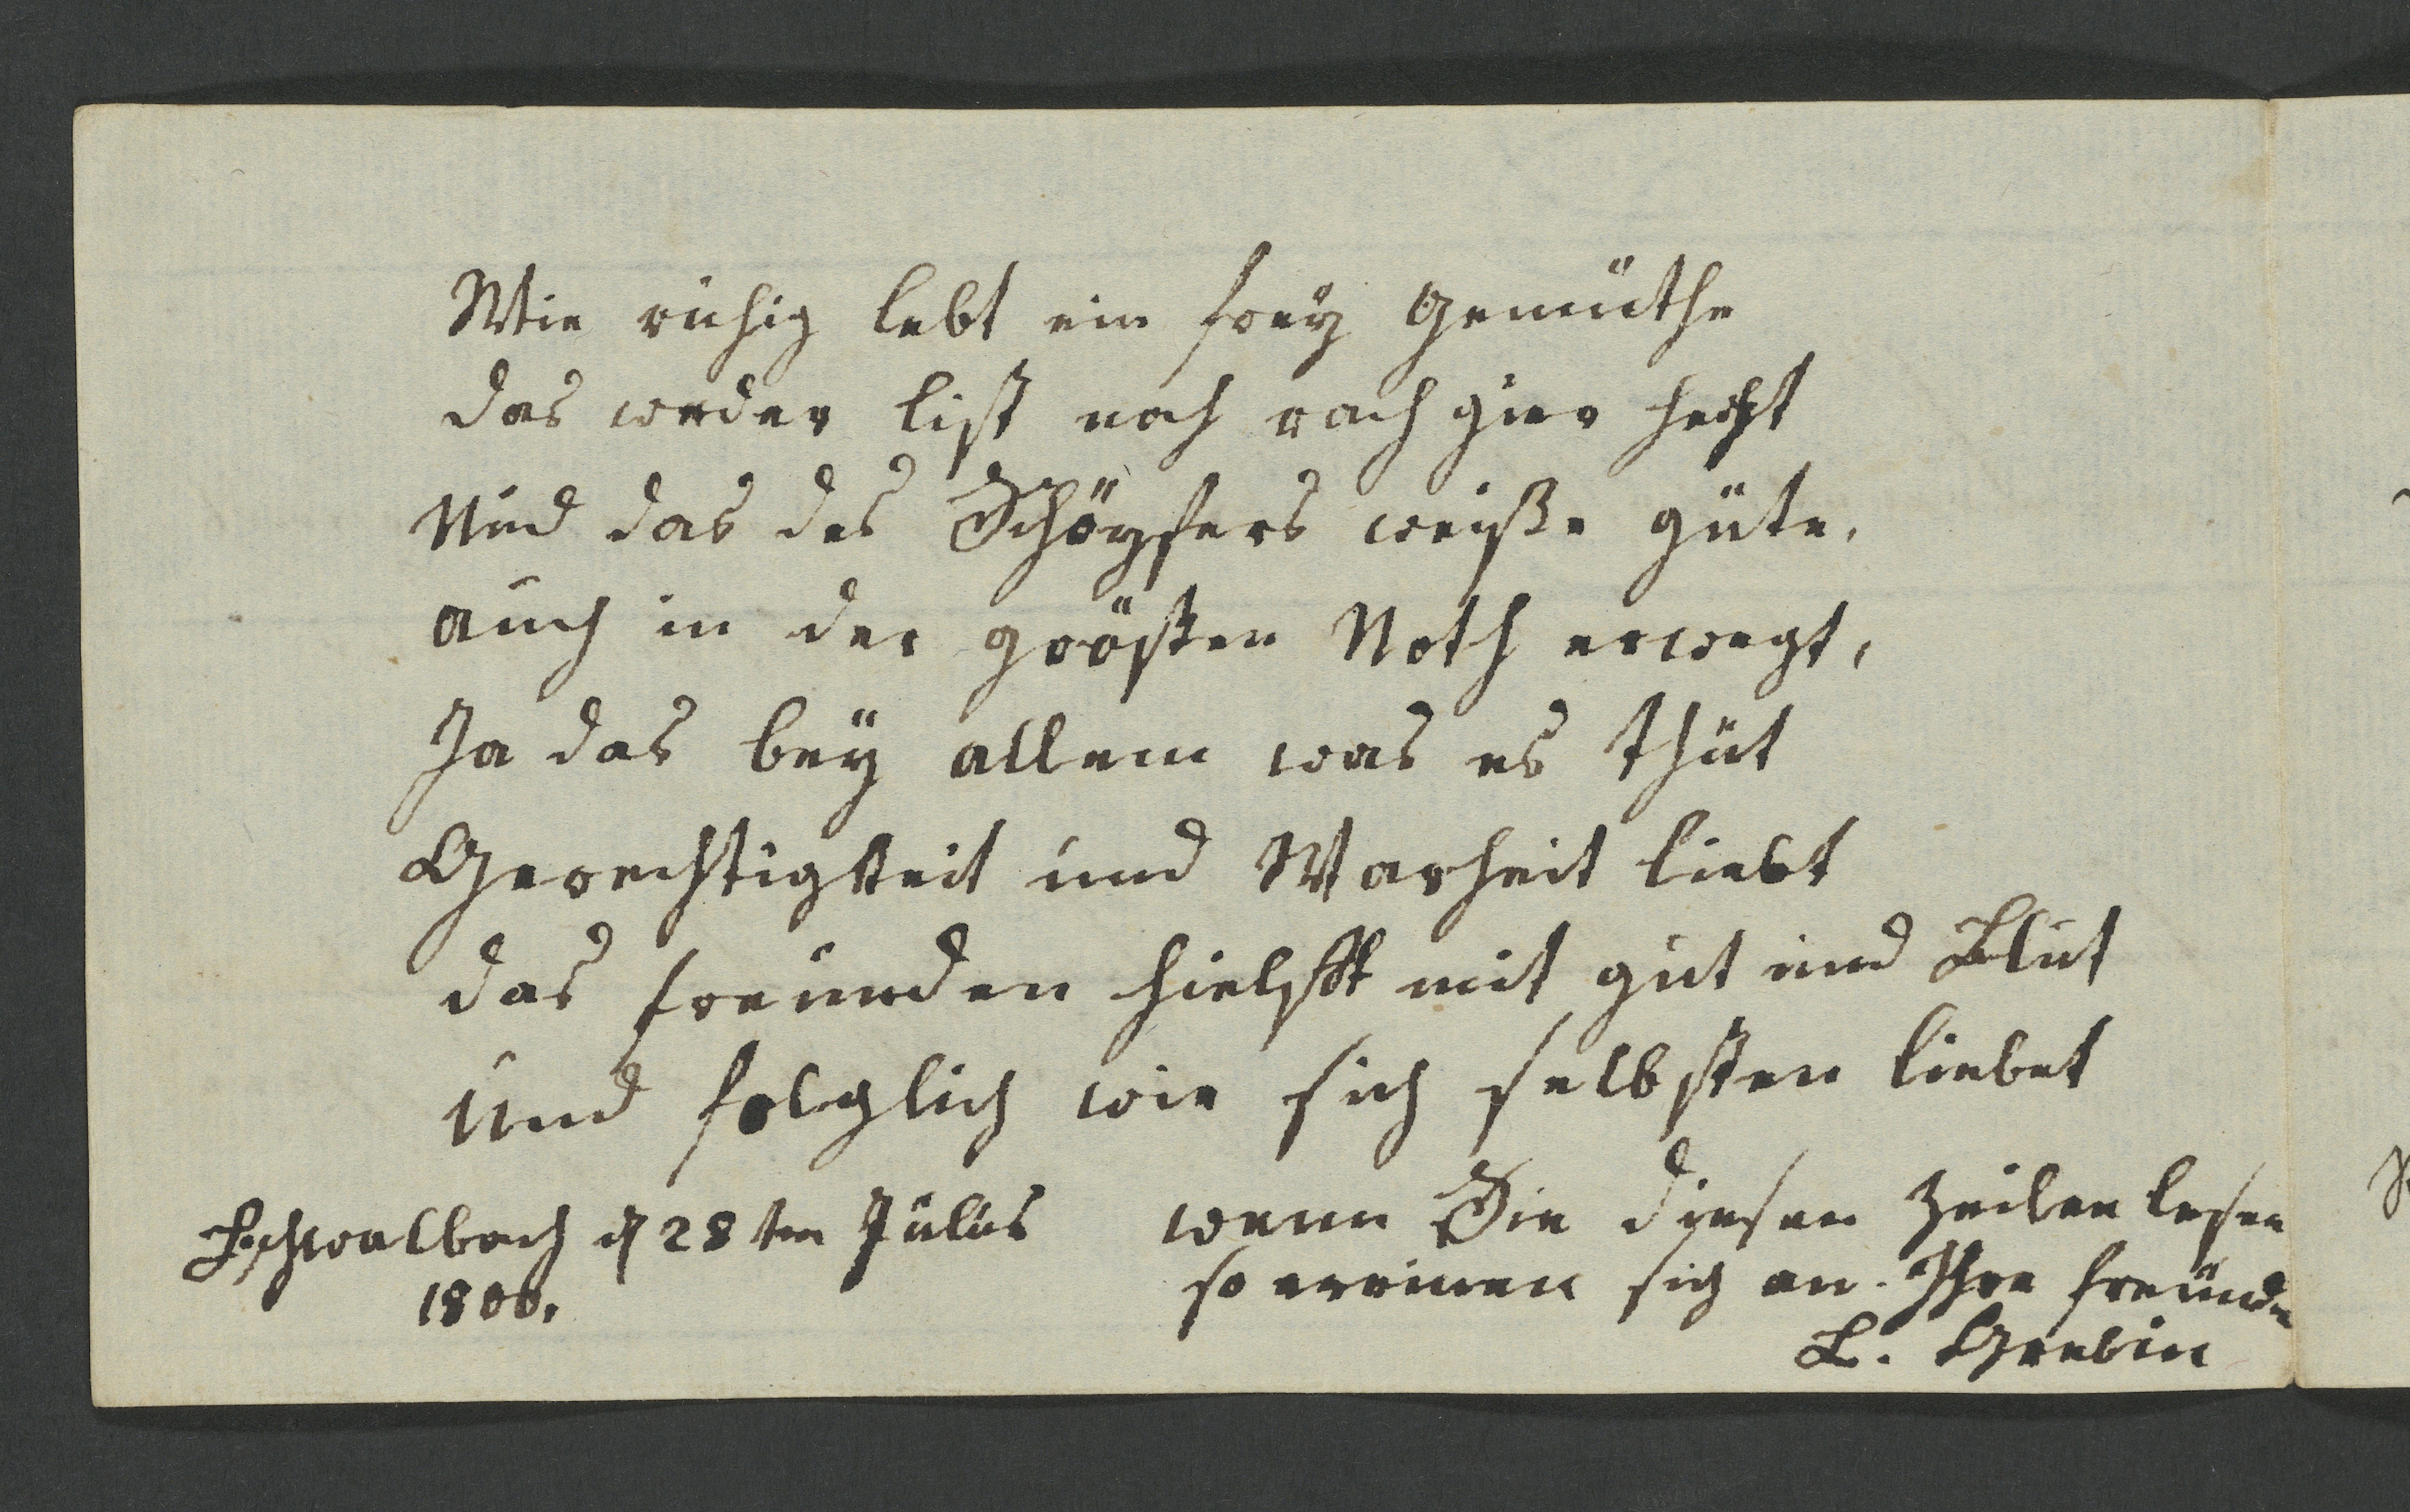 Wie ruhig lebt ein frey Gemüthe
das weder list noch rach gier hecht
Und das des Schöpfers weiße güte.
auch in der größten Noth erwegt,
Ja das bey allem was es thut
Gerechtigkeit und Warheit liebt
das freunden hielfft mit gut und Blut
und folglich wie sich selbsten liebet
Lschwalbach d 28 ten Julius
1800.
wenn Sie diesen Zeilen lesen
so errinen sich an. Ihre freundn
L. Grebin